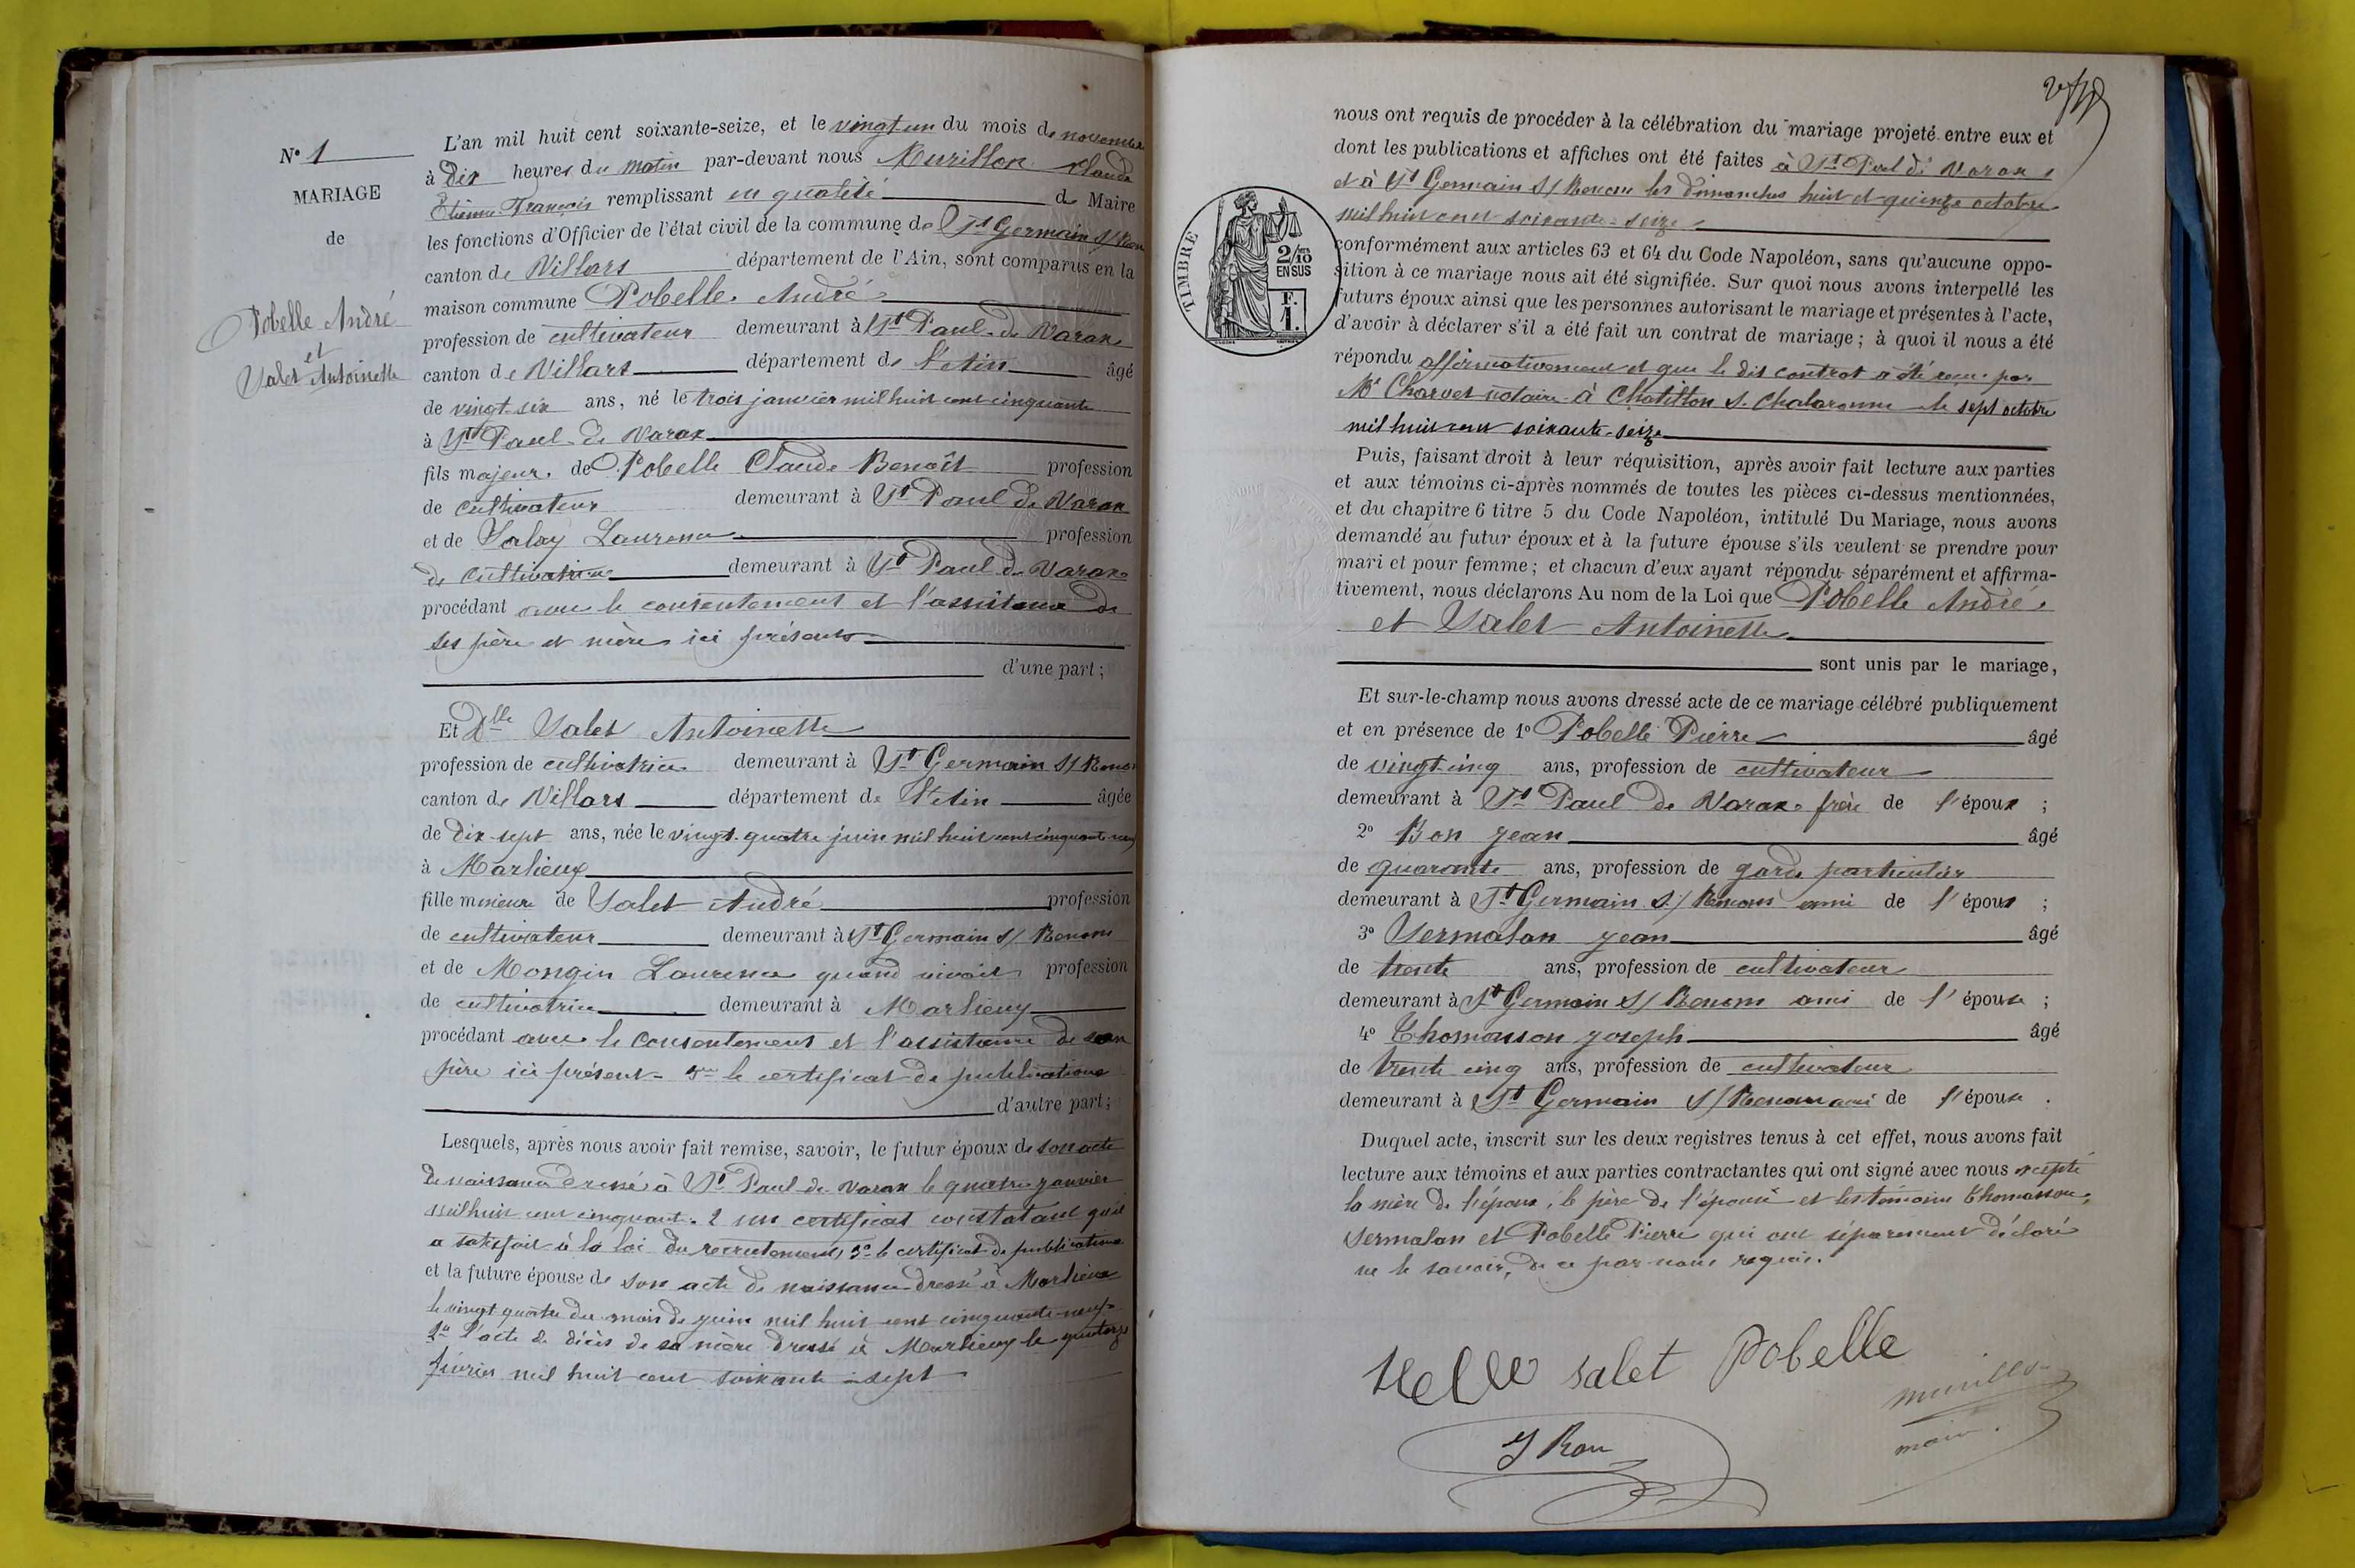 N° 1
MARIAGE
de
Pobelle André
et
Salet Antoinette
L'an mil huit cent soixante-seize, et le vingt un du mois de novembre
à dix heures du matin par-devant nous Murillon Claude
Etienne François remplissant en qualité de Maire
les fonctions d'Officier de l'état civil de la commune de St Germain S/ Renon
canton de Villars département de l'Ain, sont comparus en la
maison commune Pobelle André
profession de cultivateur demeurant à St Paul de Varax
canton de Villars département de l'Ain âgé
de vingt-six ans, né le trois janvier mil huit cent cinquante
à St Paul de Varax
fils majeur de Pobelle Claude Benoît profession
de cultivateur demeurant à St Paul de Varax
et de Salay Laurence profession
de cultivatrice demeurant à St Paul de Varax
procédant avec le consentement et l'assistance de
ses père et mère ici présents
d'une part;
Et Dlle Salet Antoinette
profession de cultivatrice demeurant à St Germain S/ Renon
canton de Villars département de l'Ain âgée
de dix-sept ans, née le vingt-quatre juin mil huit cent cinquante neuf
à Marlieux
fille mineure de Salet André profession
de cultivateur demeurant à St Germain S/ Renon
et de Mongin Laurence quand vivait profession
de cultivatrice demeurant à Marlieux
procédant avec le consentement et l'assistance de son
père ici présent - 3° le certificat de publications
d'autre part;
Lesquels, après nous avoir fait remise, savoir, le futur époux de son acte
de naissance dressé à St Paul de Varax le quatre janvier
mil huit cent cinquante. 2 un certificat constatant qu'il
a satisfait à la loi du recrutement, 3° le certificat de publications
et la future épouse de son acte de naissance dressé à Marlieux
le vingt quatre du mois de juin mil huit cent cinquante-neuf
2° l'acte de décès de sa mère dressé à Marlieux le quatorze
février mil huit cent soixante sept
nous ont requis de procéder à la célébration du mariage projeté entre eux et
dont les publications et affiches ont été faites à St Paul de Varax
et à St Germain S/ Renon les dimanches huit et quinze octobre
mil huit cent soixante-seize
TIMBRE
2/10
EN SUS
F.
1.
conformément aux articles 63 et 64 du Code Napoléon, sans qu'aucune oppo-
sition à ce mariage nous ait été signifiée. Sur quoi nous avons interpellé les
futurs époux ainsi que les personnes autorisant le mariage et présentes à l'acte,
d'avoir à déclarer s'il a été fait un contrat de mariage; à quoi il nous a été
répondu affirmativement et que le dit contrat a été reçu par
Me Charvet notaire à Chatillon S. Chalaronne le sept octobre
mil huit cent soixante-seize
Puis, faisant droit à leur réquisition, après avoir fait lecture aux parties
et aux témoins ci-après nommés de toutes les pièces ci-dessus mentionnées,
et du chapitre 6 titre 5 du Code Napoléon, intitulé Du Mariage, nous avons
demandé au futur époux et à la future épouse s'ils veulent se prendre pour
mari et pour femme; et chacun d'eux ayant répondu séparément et affirma-
tivement, nous déclarons Au nom de la Loi que Pobelle André
et Salet Antoinette
sont unis par le mariage,
Et sur-le-champ nous avons dressé acte de ce mariage célébré publiquement
et en présence de 1° Pobelle Pierre âgé
de vingt-cinq ans, profession de cultivateur
demeurant à St Paul de Varax frère de l'époux ;
2° Bon Jean âgé
de quarante ans, profession de garde particulier
demeurant à St Germain S/ Renom ami de l'époux ;
3° Sermalan Jean âgé
de trente ans, profession de cultivateur
demeurant à St Germain S/ Renom ami de l'épouse ;
4° Thomasson Joseph âgé
de trente cinq ans, profession de cultivateur
demeurant à St Germain S/ Renom ami de l'épouse .
Duquel acte, inscrit sur les deux registres tenus à cet effet, nous avons fait
lecture aux témoins et aux parties contractantes qui ont signé avec nous excepté
la mère de l'époux, le père de l'épouse et les témoins Thomasson,
Sermalan et Pobelle Pierre qui ont séparement déclaré
ne le savoir, de ce par nous requis.
salet Pobelle
J Bon
murillon
maire